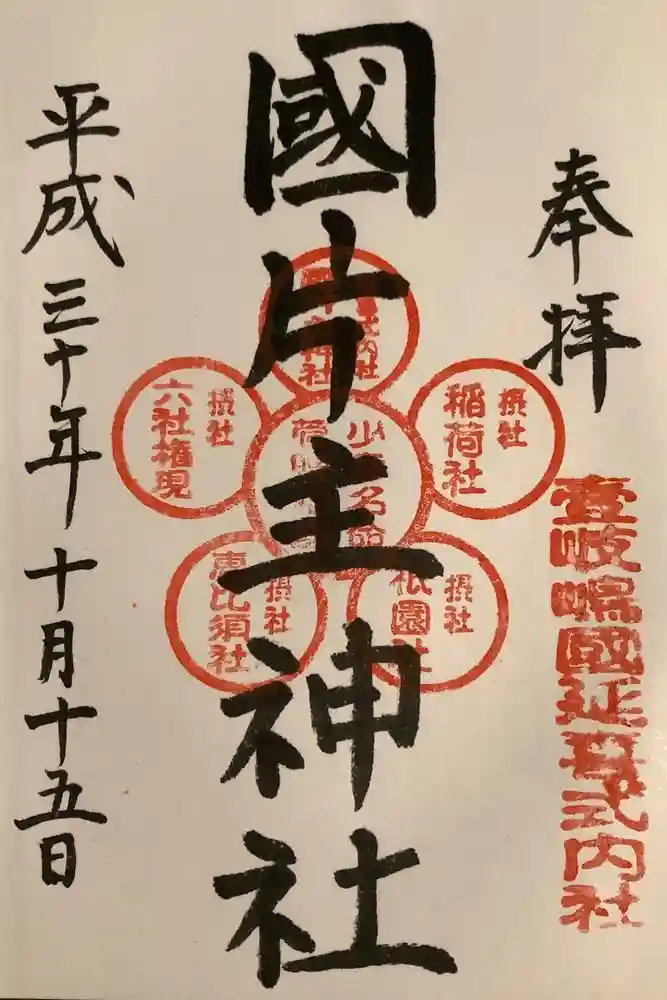 奉拝
壹岐嶋國延喜式内社
國片主神社
式内社
摂社
稲荷社
摂社
六社権現
少
名命
摂社
祇園社
摂社
恵比須社
平成三十年十月十五日